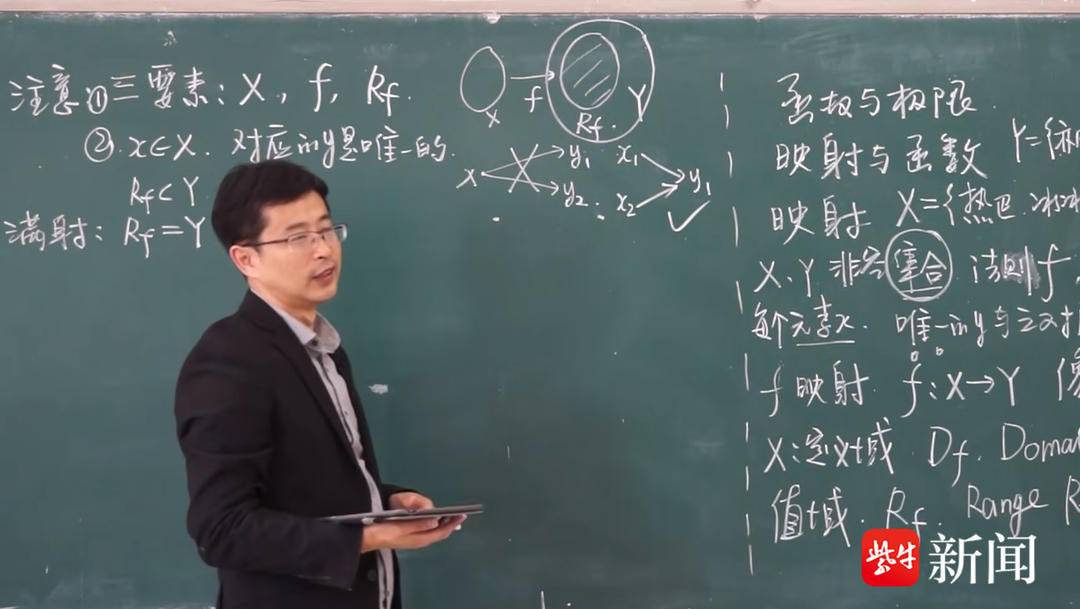 注意:①三要素: X, f, Rf.
②. x∈X. 对应的y是唯一的.
Rf⊂Y
满射: Rf=Y
X
f
Rf
Y
x
y₁
y₂
x₁
x₂
y₁
函数与极限.
映射与函数
Y={
映射 X={热巴.
X、Y 非空集合 法则f
每个元素x. 唯一的y与之对
f映射 f:X→Y
X:定义域. Df. Doma
值域. Rf. Range R
紫牛新闻